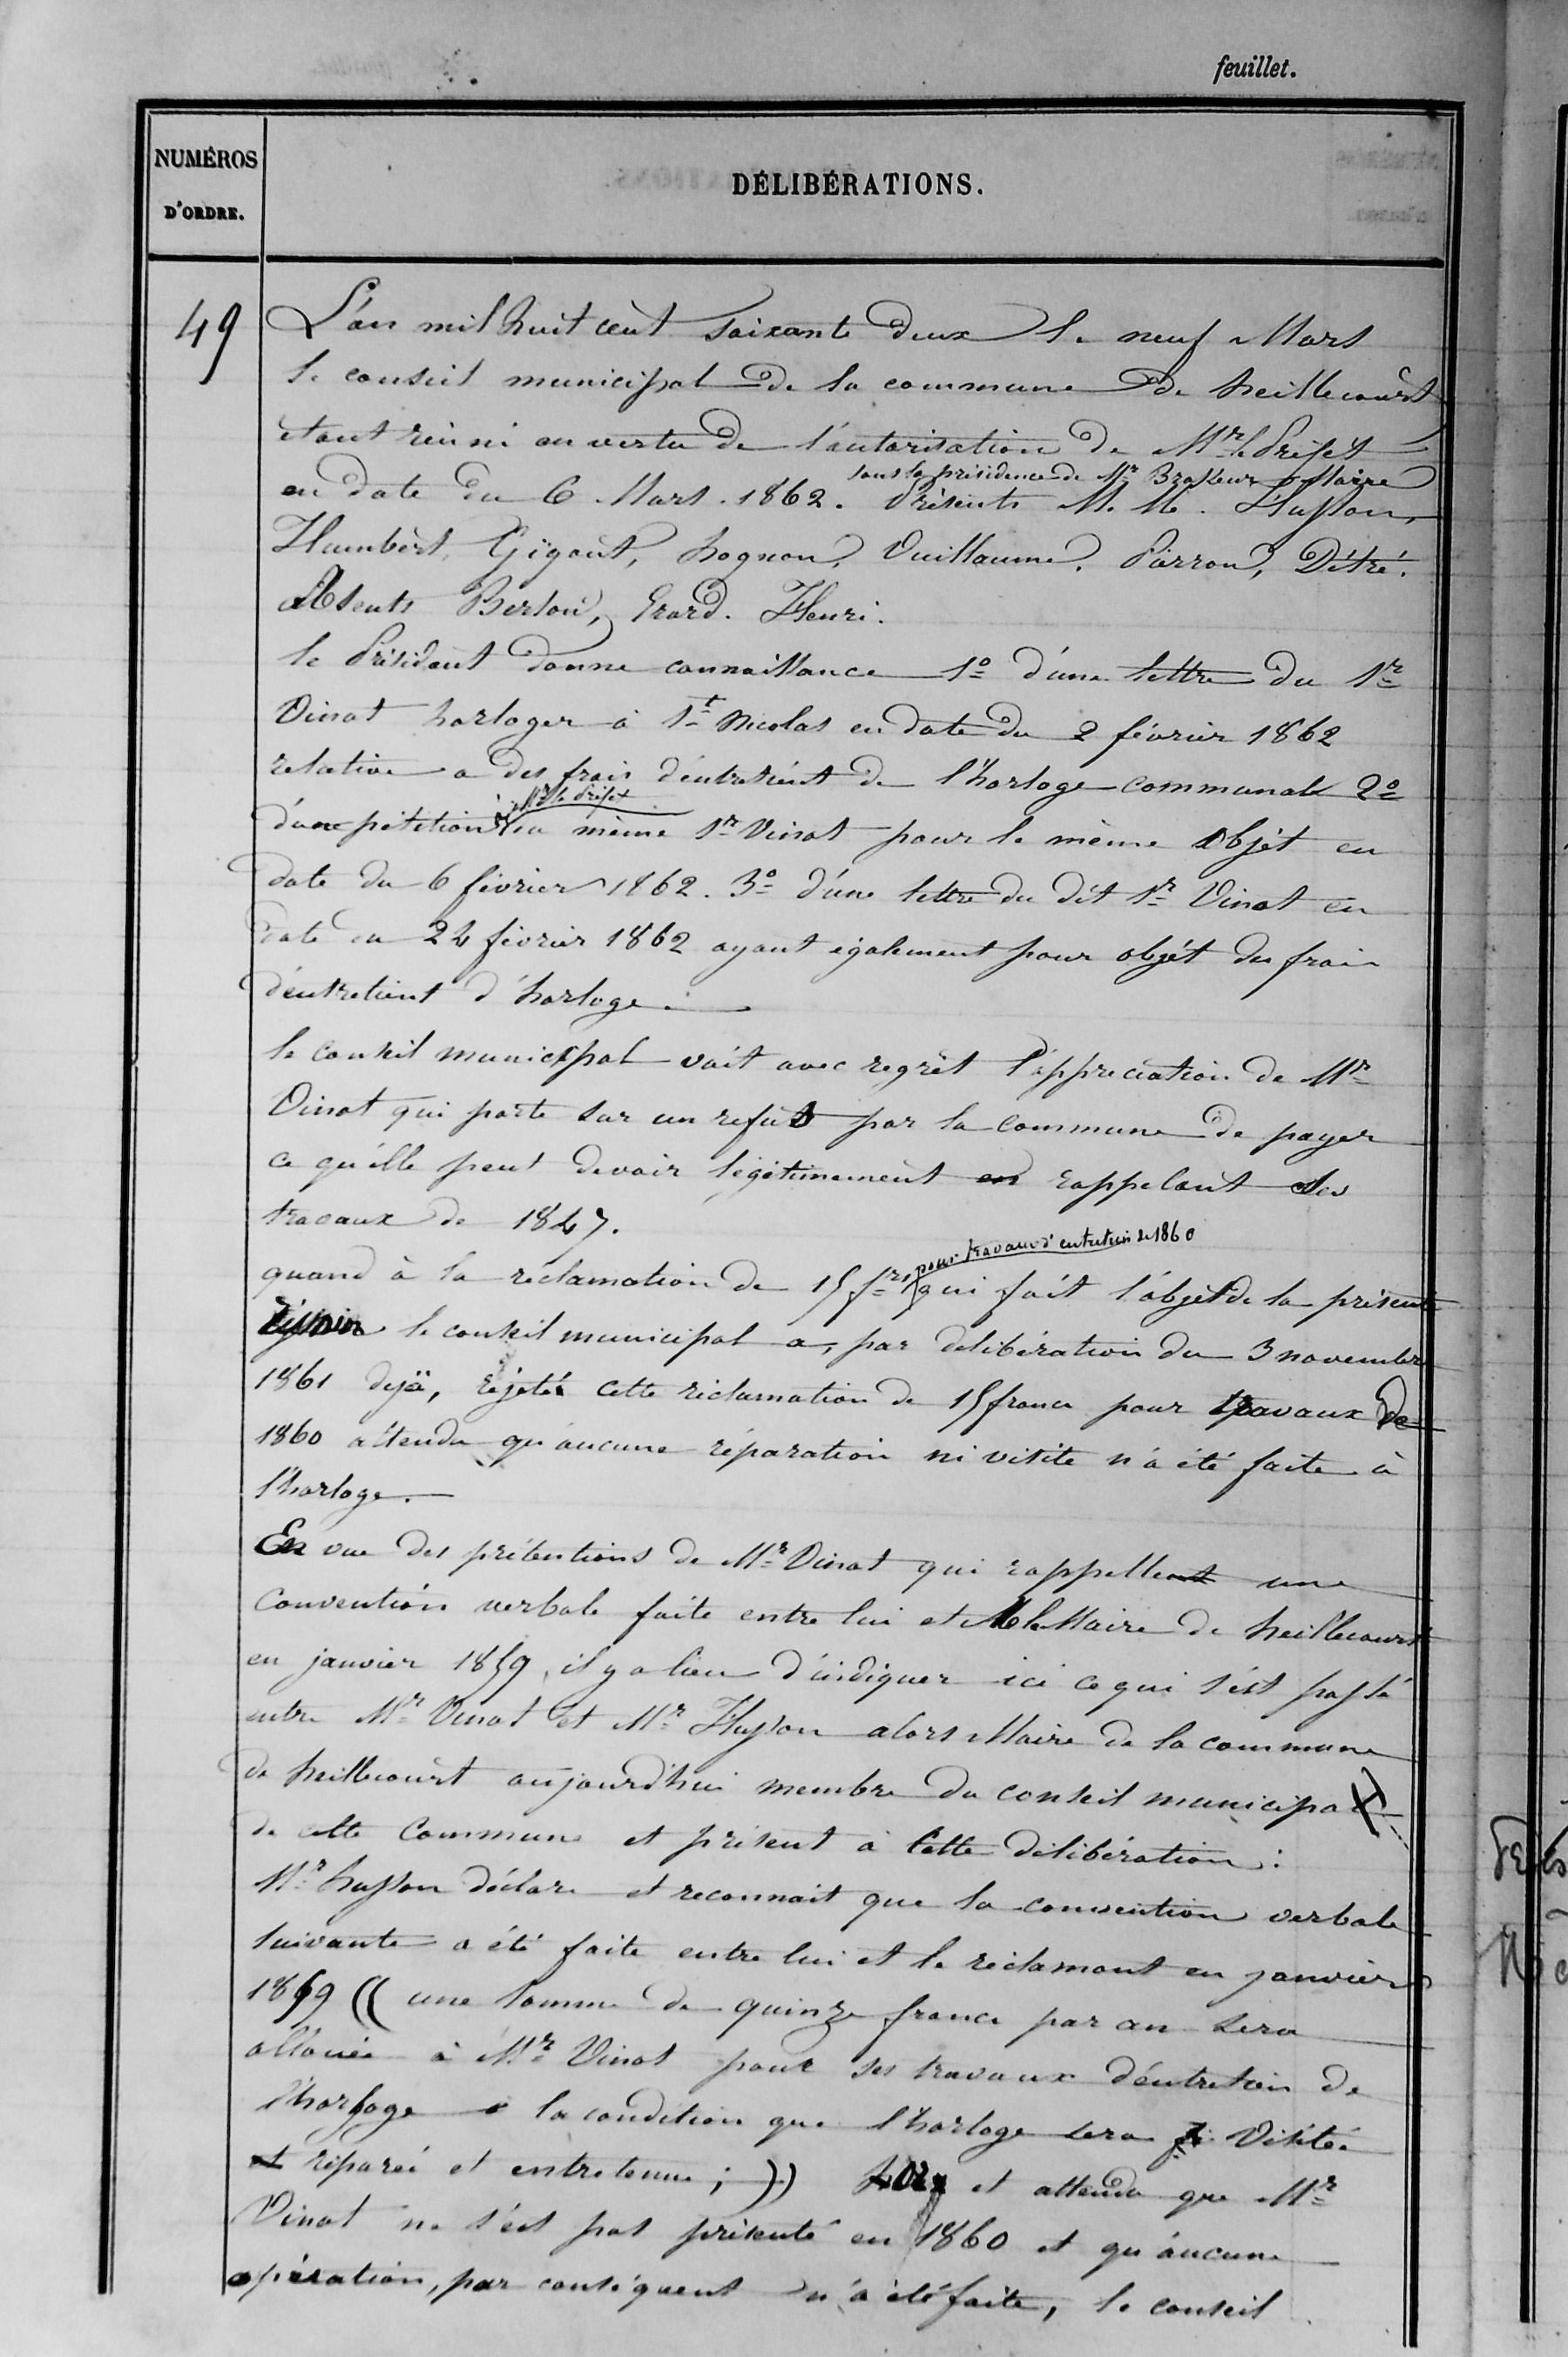 feuillet.
NUMÉROS
D'ORDRE.
DÉLIBÉRATIONS.
49
L'an mil huit cent soixante deux le neuf Mars
le conseil municipal de la commune de heillecourt
étant réuni en vertu de l'autorisation de Mr le Préfet
sous la présidence de Mr Brasseur Maire
en date du 6 Mars 1862. Présents M. M. Husson,
Humbert, Gigout, hognon, Vuillaume, Parron, Détré.
Absents Berlon, Erard. Henri.
le Président donne connaissance 1o d'une lettre du Sr
Vinot horloger à St Nicolas en date du 2 février 1862
relative a des frais d'entretient de l'horloge communale 2o
à Mr le Préfet
d'une pétition du même Sr Vinot pour le même objet en
date du 6 février 1862. 3o d'une lettre du dit Sr Vinot en
date du 24 février 1862 ayant également pour objét des frais
d'entretient d'horloge.
le conseil municipal voit avec regrèt l'appreciation de Mr
Vinot qui porte sur un refus par la commune de payer
ce qu'elle peut devoir légitimement en rappelant des
travaux de 1847.
pour travaux d'entretien de 1860
quand à la réclamation de 15 frs qui fait l'objet de la présente
le conseil municipal a, par délibération du 3 novembre
1861 dejà, rejeté cette réclamation de 15 francs pour travaux de
1860 attendu qu'aucune réparation ni visite n'a été faite à
l'horloge.
En vue des prétentions de Mr Vinot qui rappellent une
convention verbale faite entre lui et M le Maire de heillecourt
en janvier 1859, il y a lieu d'indiquer ici ce qui s'est passé
entre Mr Vinot et Mr Husson alors Maire de la commune
de heillecourt aujourd'hui membre du conseil municipal
de cette Commune et présent à cette délibération:
Mr husson déclare et reconnait que la convention verbale
suivante a été faite entre lui et le réclamant en janvier
1859 (( une somme de quinze francs par an sera
allouée à Mr Vinot pour ses travaux d'entretien de
l'horloge à la condition que l'horloge sera visitée
et réparée et entretenue; )) et attendu que Mr
Vinot ne s'est pas présenté en 1860 et qu'aucune
opération, par conséquent n'a été faite, le conseil